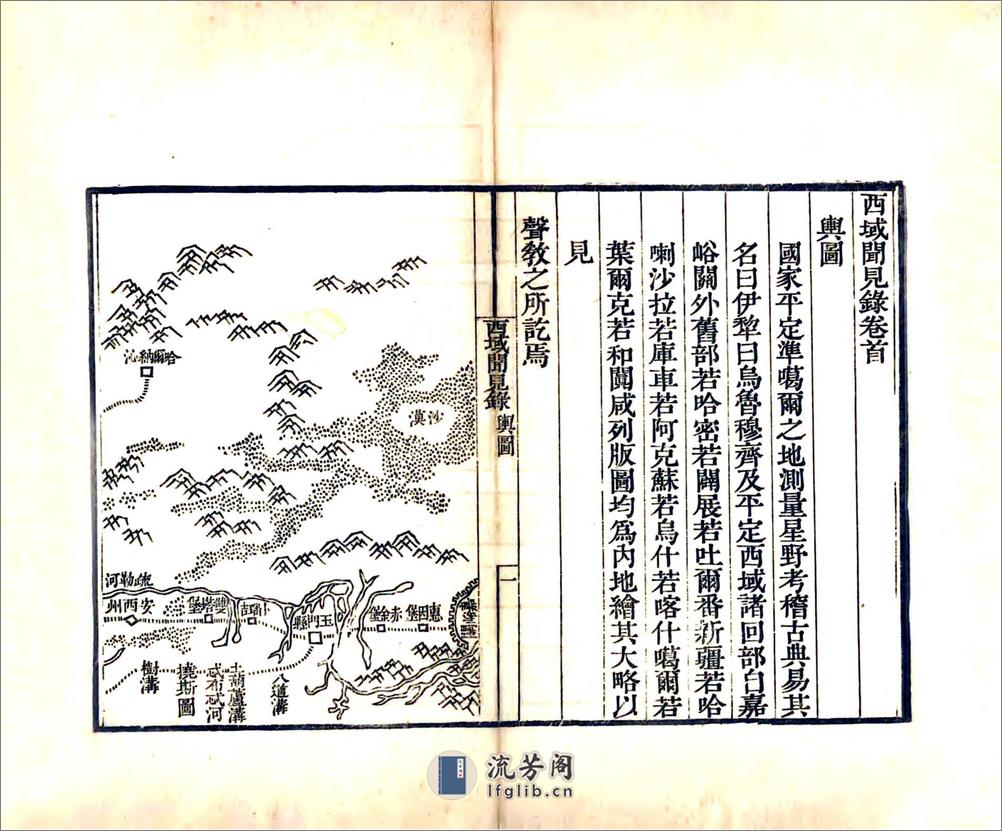 西域聞見錄卷首
輿圖
國家平定準噶爾之地測量星野考稽古典易其
名曰伊犂曰烏魯穆齊及平定西域諸回部自嘉
峪關外舊部若哈密若闢展若吐爾番新疆若哈
喇沙拉若庫車若阿克蘇若烏什若喀什噶爾若
葉爾克若和闐咸列版圖均爲內地繪其大略以
見
聲教之所訖焉
西域聞見錄
輿圖
一
沙漠
哈爾納沁
惠回堡
赤金堡
玉門縣
雙塔堡
安西州
疏勒河
八道溝
土葫蘆溝
撓斯圖
樹溝
流芳阁
lfglib.cn